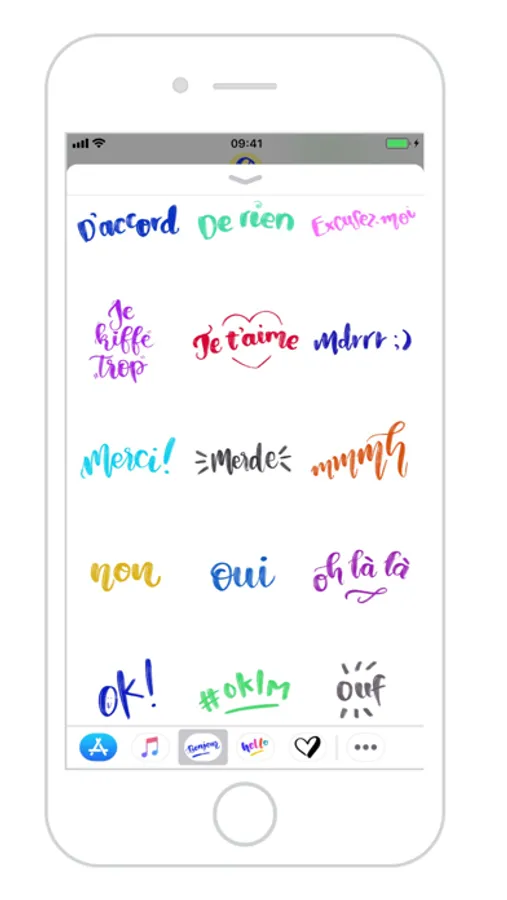 09:41
D'accord
De rien
Excusez-moi
Je
kiffe
trop
Je t'aime
Mdrrr ;)
Merci!
Merde
mmmh
non
oui
oh là là
OK!
#oklm
ouf
Bonjour
hello